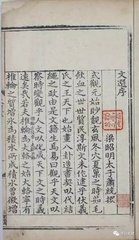 文選序
梁昭明太子蕭統撰
式觀元始眇覿玄風冬穴夏巢之時茹毛
飲血之世世質民淳斯文未作逮乎伏羲
氏之王天下也始畫八卦造書契以代結
繩之政由是文籍生焉易曰觀乎天文以
察時變觀乎人文以化成天下文之時義
遠矣哉若夫椎輪為大輅之始大輅寧有
椎輪之質增冰為積水所成積水曾微增